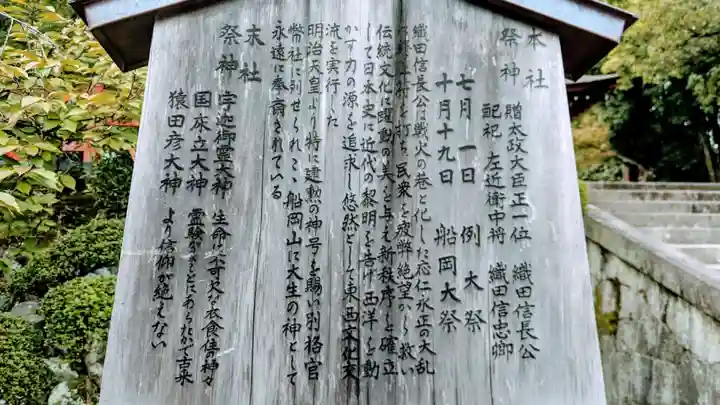 本社
祭神
贈太政大臣正一位 織田信長公
配祀 左近衛中将 織田信忠卿
七月一日 例大祭
十月十九日 船岡大祭
織田信長公は戦火の巷と化した応仁永正の大乱
に終止符を打ち民衆を疲弊絶望から救い
伝統文化に躍動の美を与え新秩序を確立
して日本史に近代の黎明を告げ西洋を動
かす力の源を追求し悠然として東西文化交
流を実行した
明治天皇より特に建勲の神号を賜い別格官
幣社に列せられここ船岡山に大生の神として
永遠に奉斎されている
末社
祭神
宇迦御霊大神 生命に不可欠な衣食住の神々
国床立大神 霊験がまことにあらたかで古来
猿田彦大神 より信仰が絶えない